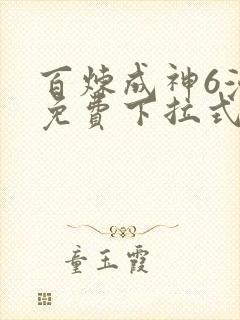 百炼成神6漫
免费下拉式
童玉霞